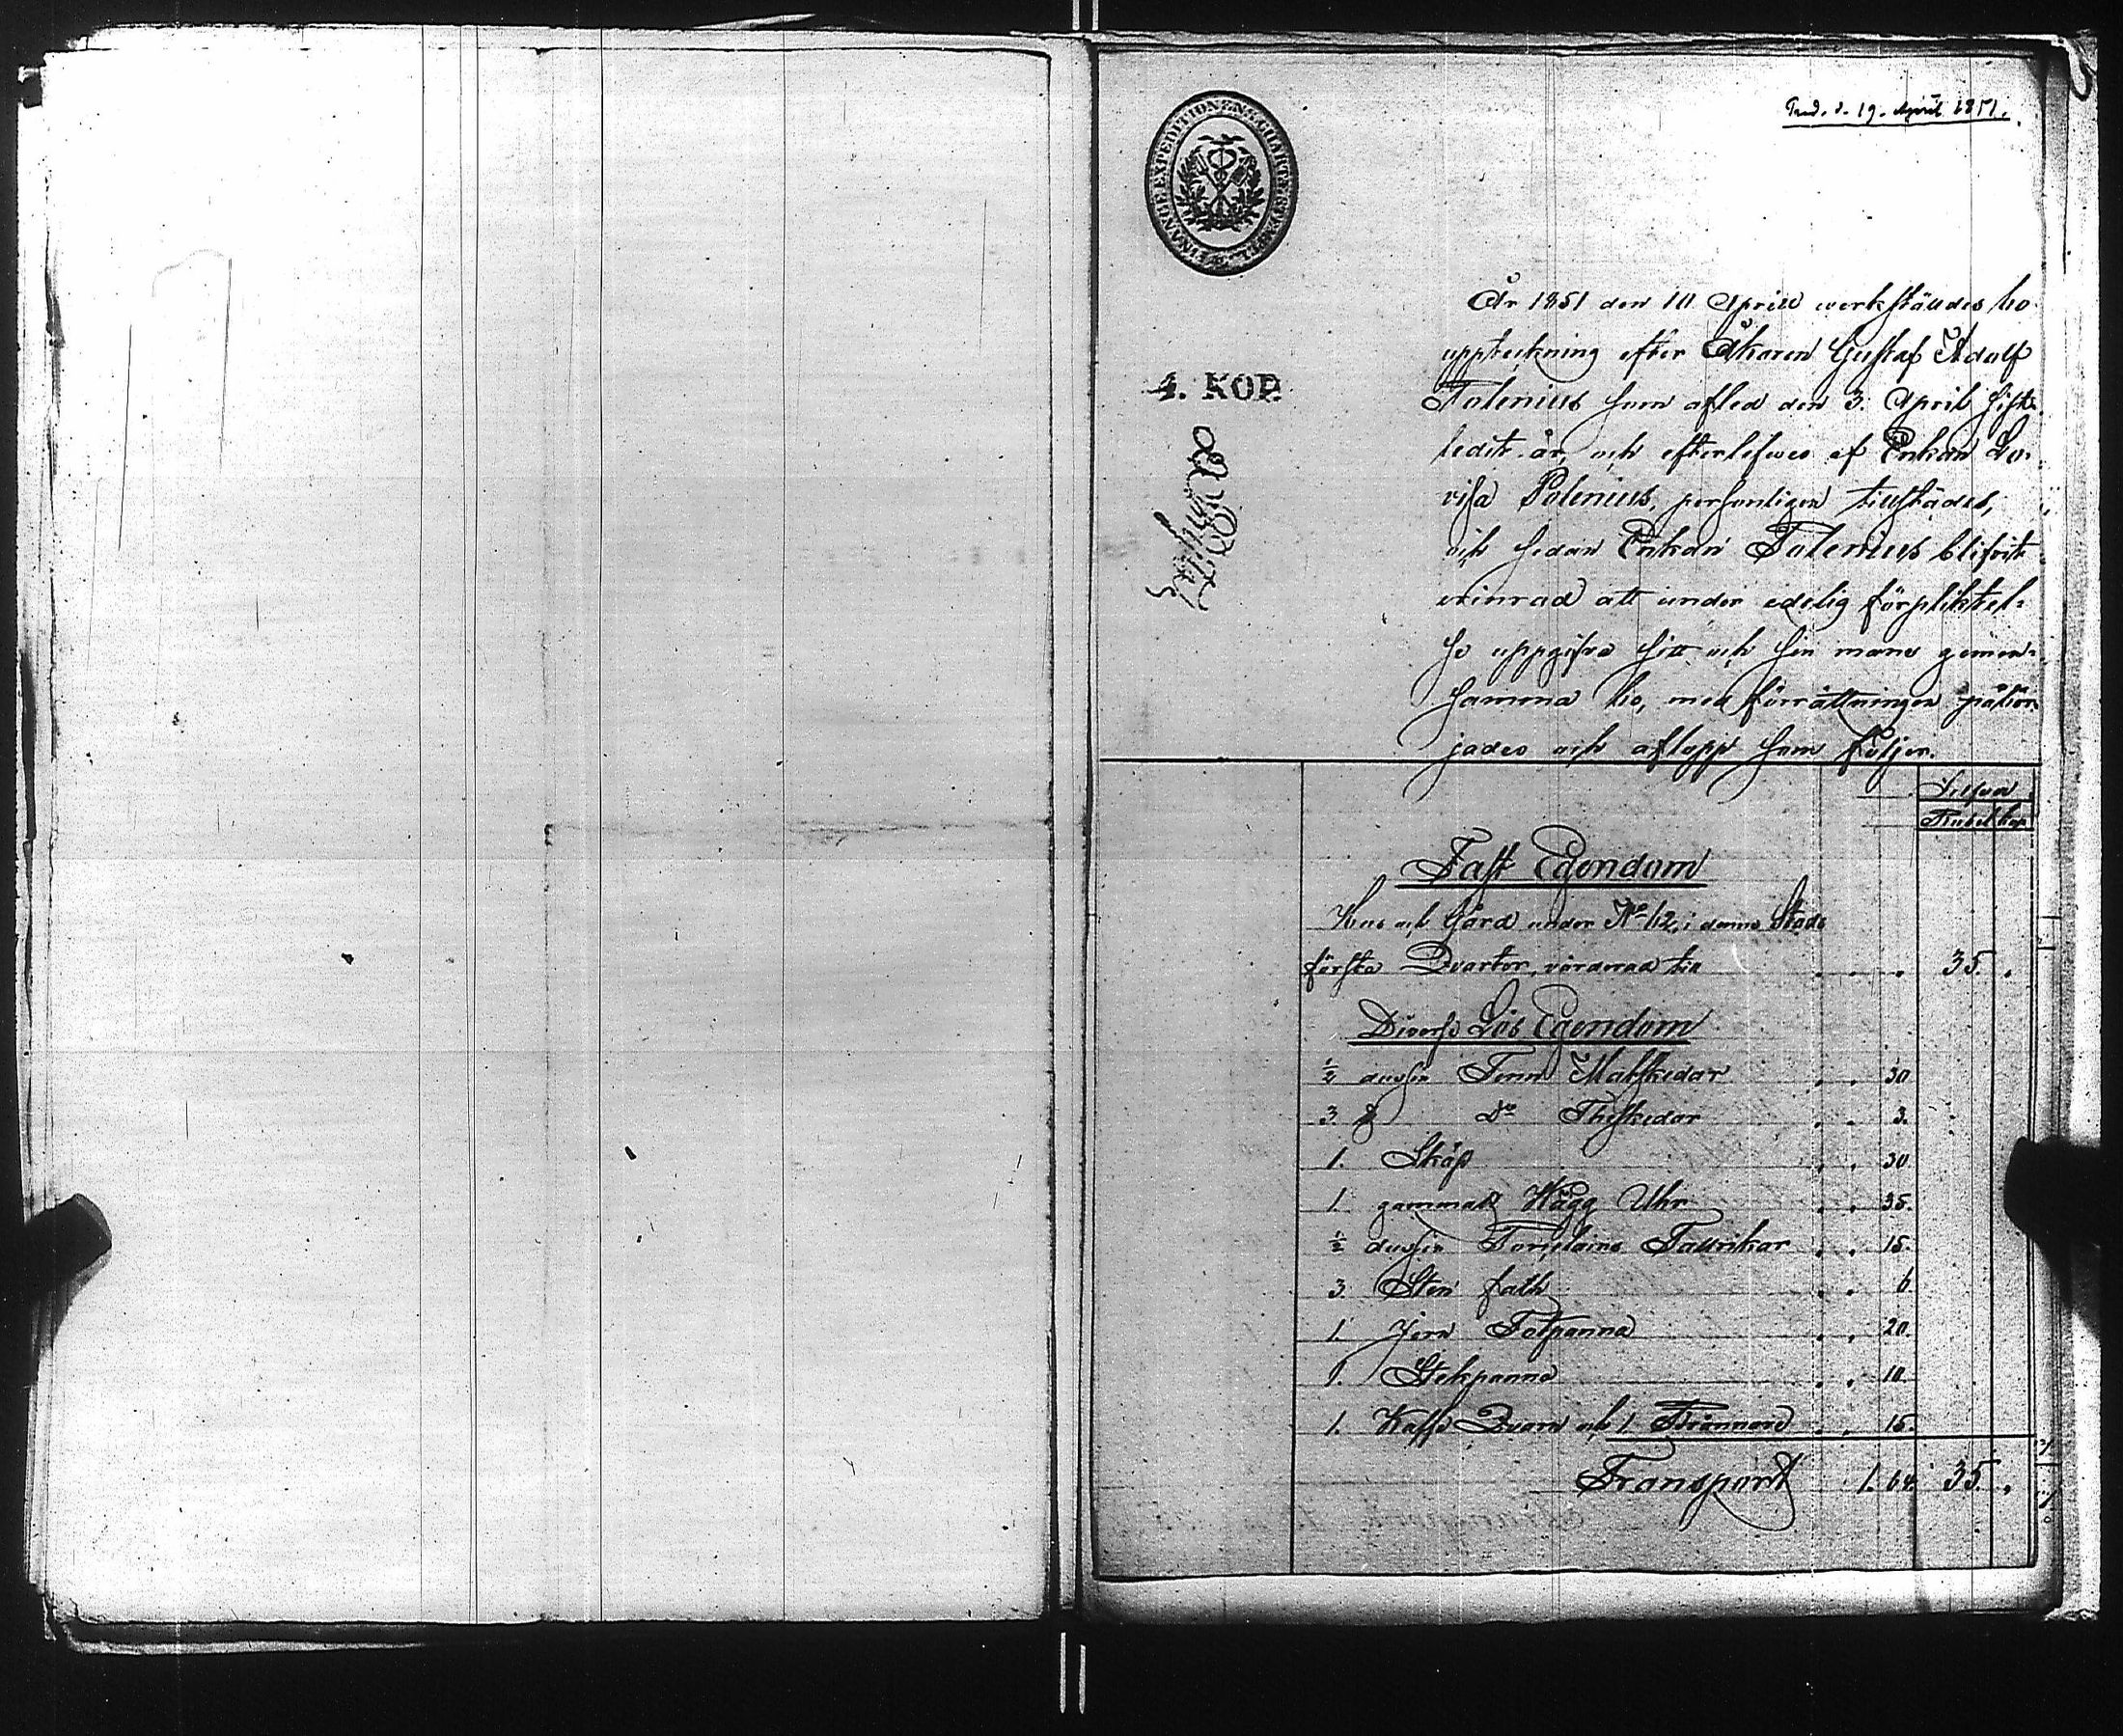 d. 19. April 1851.
FINANCE EXPEDITIONENS CHARTÆ STEMPEL
4. KOP.
År 1851 den 10 April werkställdes bo
uppteckning efter Åkaren Gustaf Adolf
Polenius som afled den 3. April sist-
ledit år, och efterlefwes af Enkan Lo-
visa Polenius, personligen tillstädes,
och sedan Enkan Polenius blifvit
erinrad att under edelig förpliktel-
se uppgifva sitt och sin mans gemen-
samma bo, med förrättningen påbör-
jades och aflopp som följer.
Silfver
Rubel kop
Fast Egendom
Hus och Gård under No 62, i denna Stads
första Qvarter, värderad till . . . 35. .
Diverse Lös Egendom
½ dussin Tenn Matskedar . . 30
3. Do Theskedar . . 3.
1. Skåp . . 30
1. gammalt Vägg Uhr . . 35.
½ dussin Porslains Tallrikar . . 15.
3. Sten fath . . 6.
1. Jern Fotpanna . . 20.
1. Stekpanna . . 10.
1. Kaffe Qvarn och 1. Brännare . . 15.
Transport 1. 64. 35. .